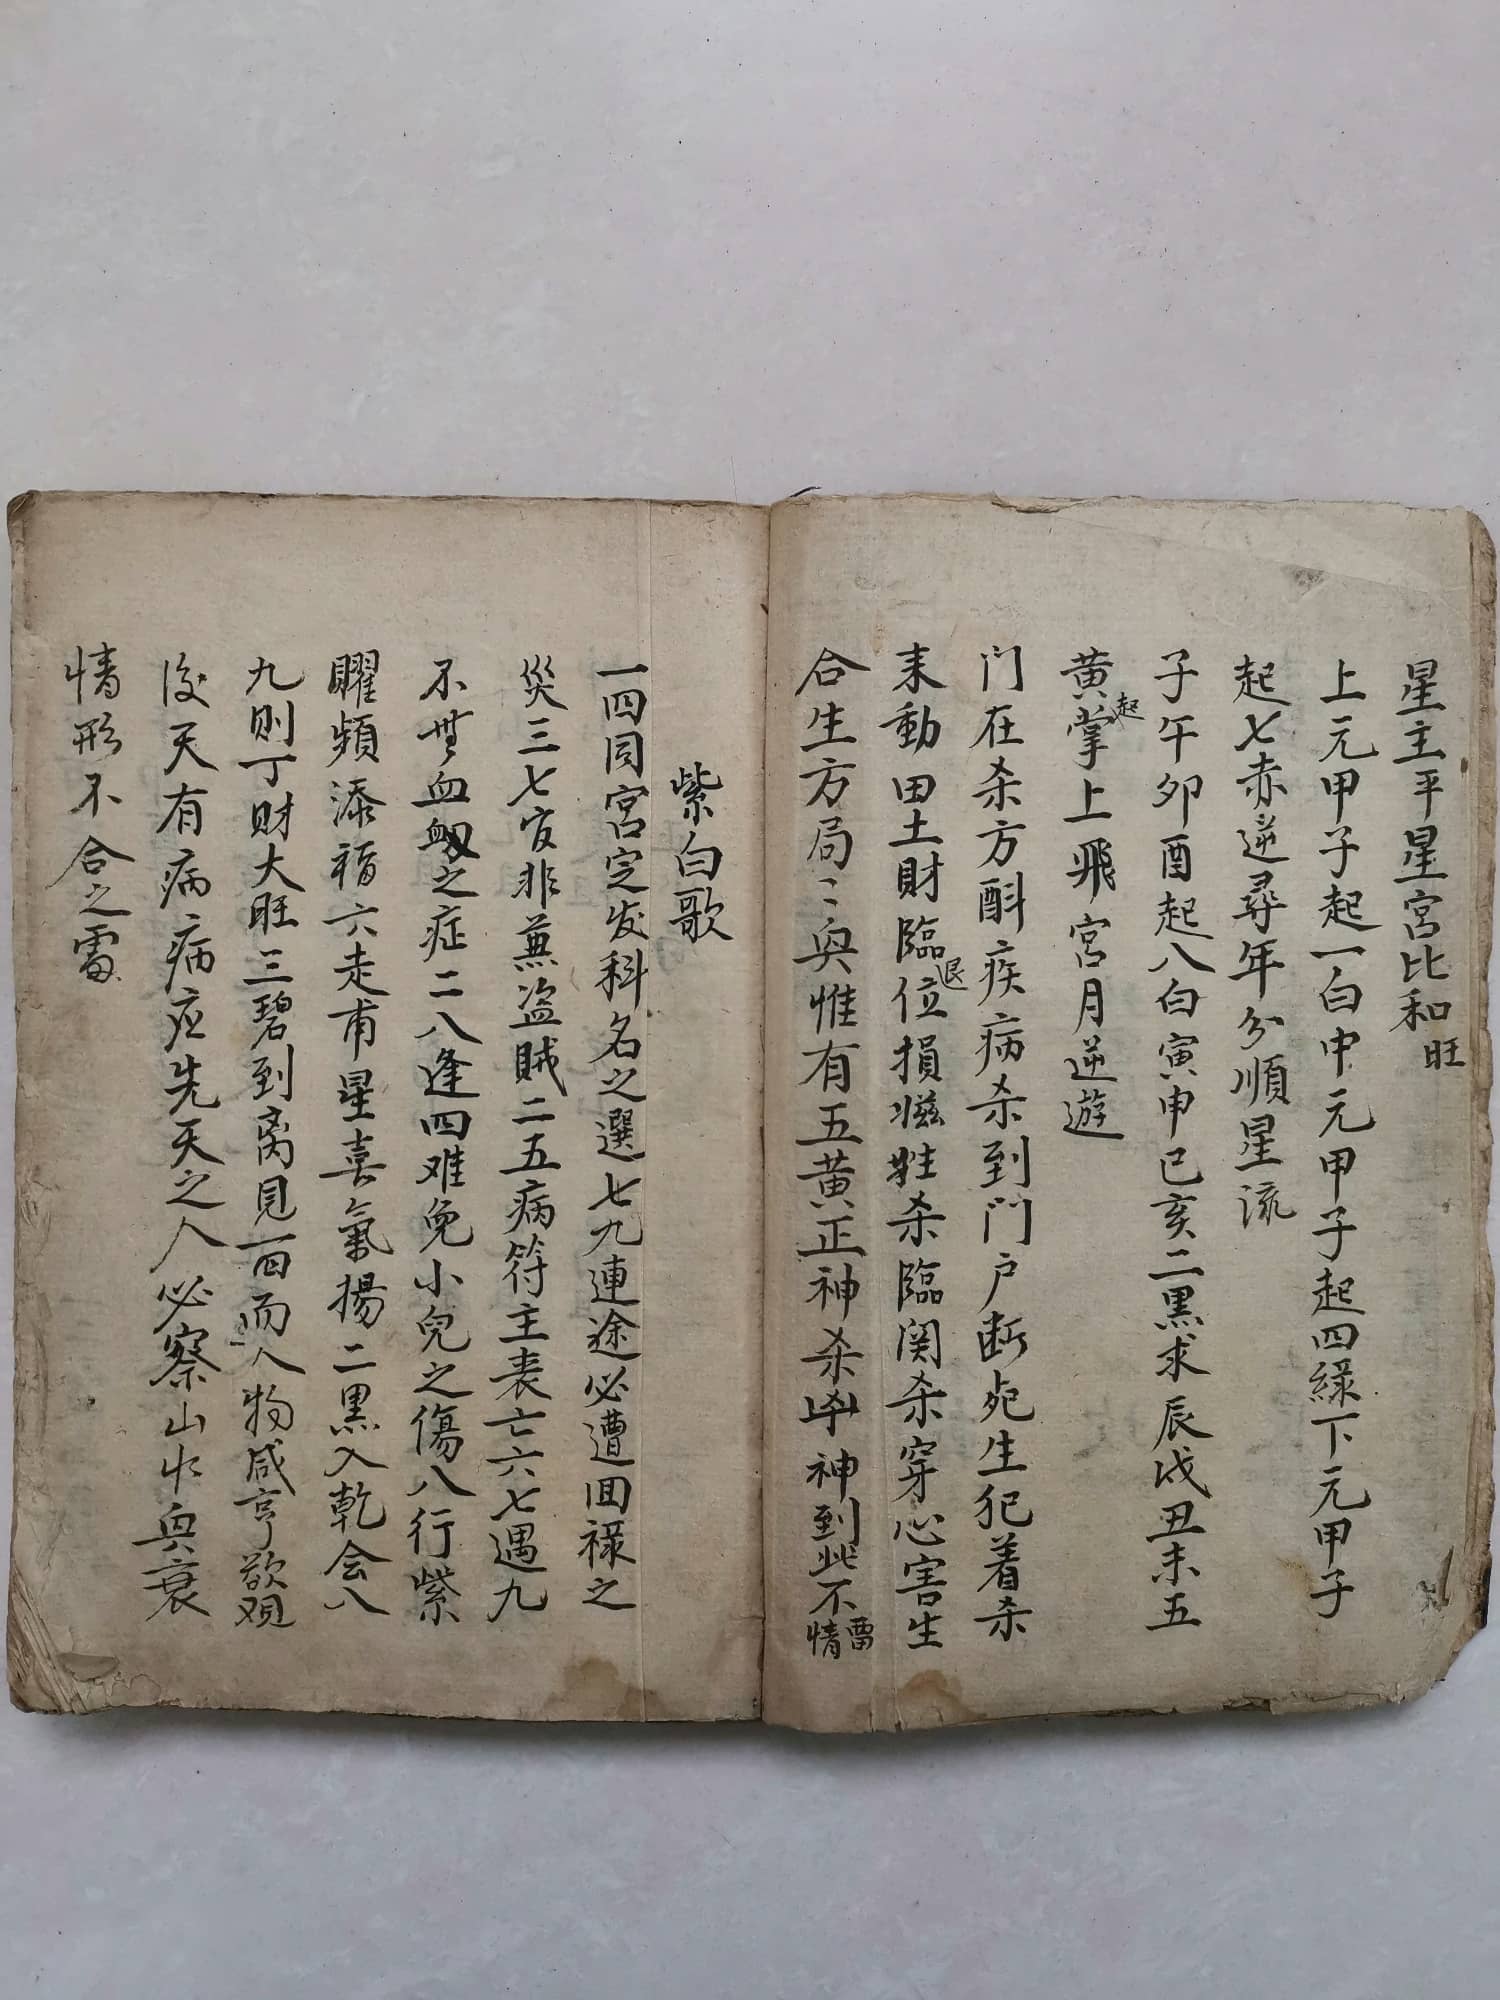 星主平星宮比和旺
上元甲子起一白中元甲子起四緑下元甲子
起七赤逆尋年分順星流
子午卯酉起八白寅申巳亥二黒求辰戌丑未五
黄起掌上飛宮月逆遊
门在杀方斟疾病杀到门户断死生犯着杀
来動田土財臨退位損滋牲杀臨関杀穿心害生
合生方局〻與惟有五黄正神杀凶神到此不留情
紫白歌
一四同宮定发科名之選七九連途必遭回禄之
災三七官非兼盗贼二五病符主丧亡六七遇九
不無血之症二八逢四难免小兒之傷八行紫
曜頻添福六走甫星喜氣揚二黒入乾会八
九則丁財大旺三碧到离見一四而人物咸亨欲观
後天有病病应先天之人必察山水與衰
情形不合之